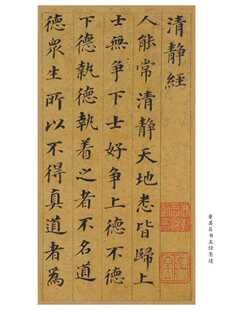 清靜經
人能常清靜天地悉皆歸上
士無爭下士好爭上德不德
下德執德執着之者不名道
德衆生所以不得真道者為
董其昌书